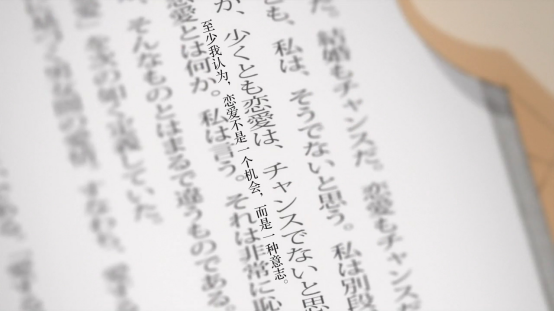 だ。結婚もチャンスだ。恋愛もチャンスだ
とも、私は、そうでないと思う。私は別段
が、少くとも恋愛は、チャンスでないと思
至少我认为，恋爱不是一个机会，而是一种意志。
恋愛とは何か。私は言う。それは非常に恥
そんなものとはまるで違うものである。
を次の如く定義していた。
すなわち、愛する